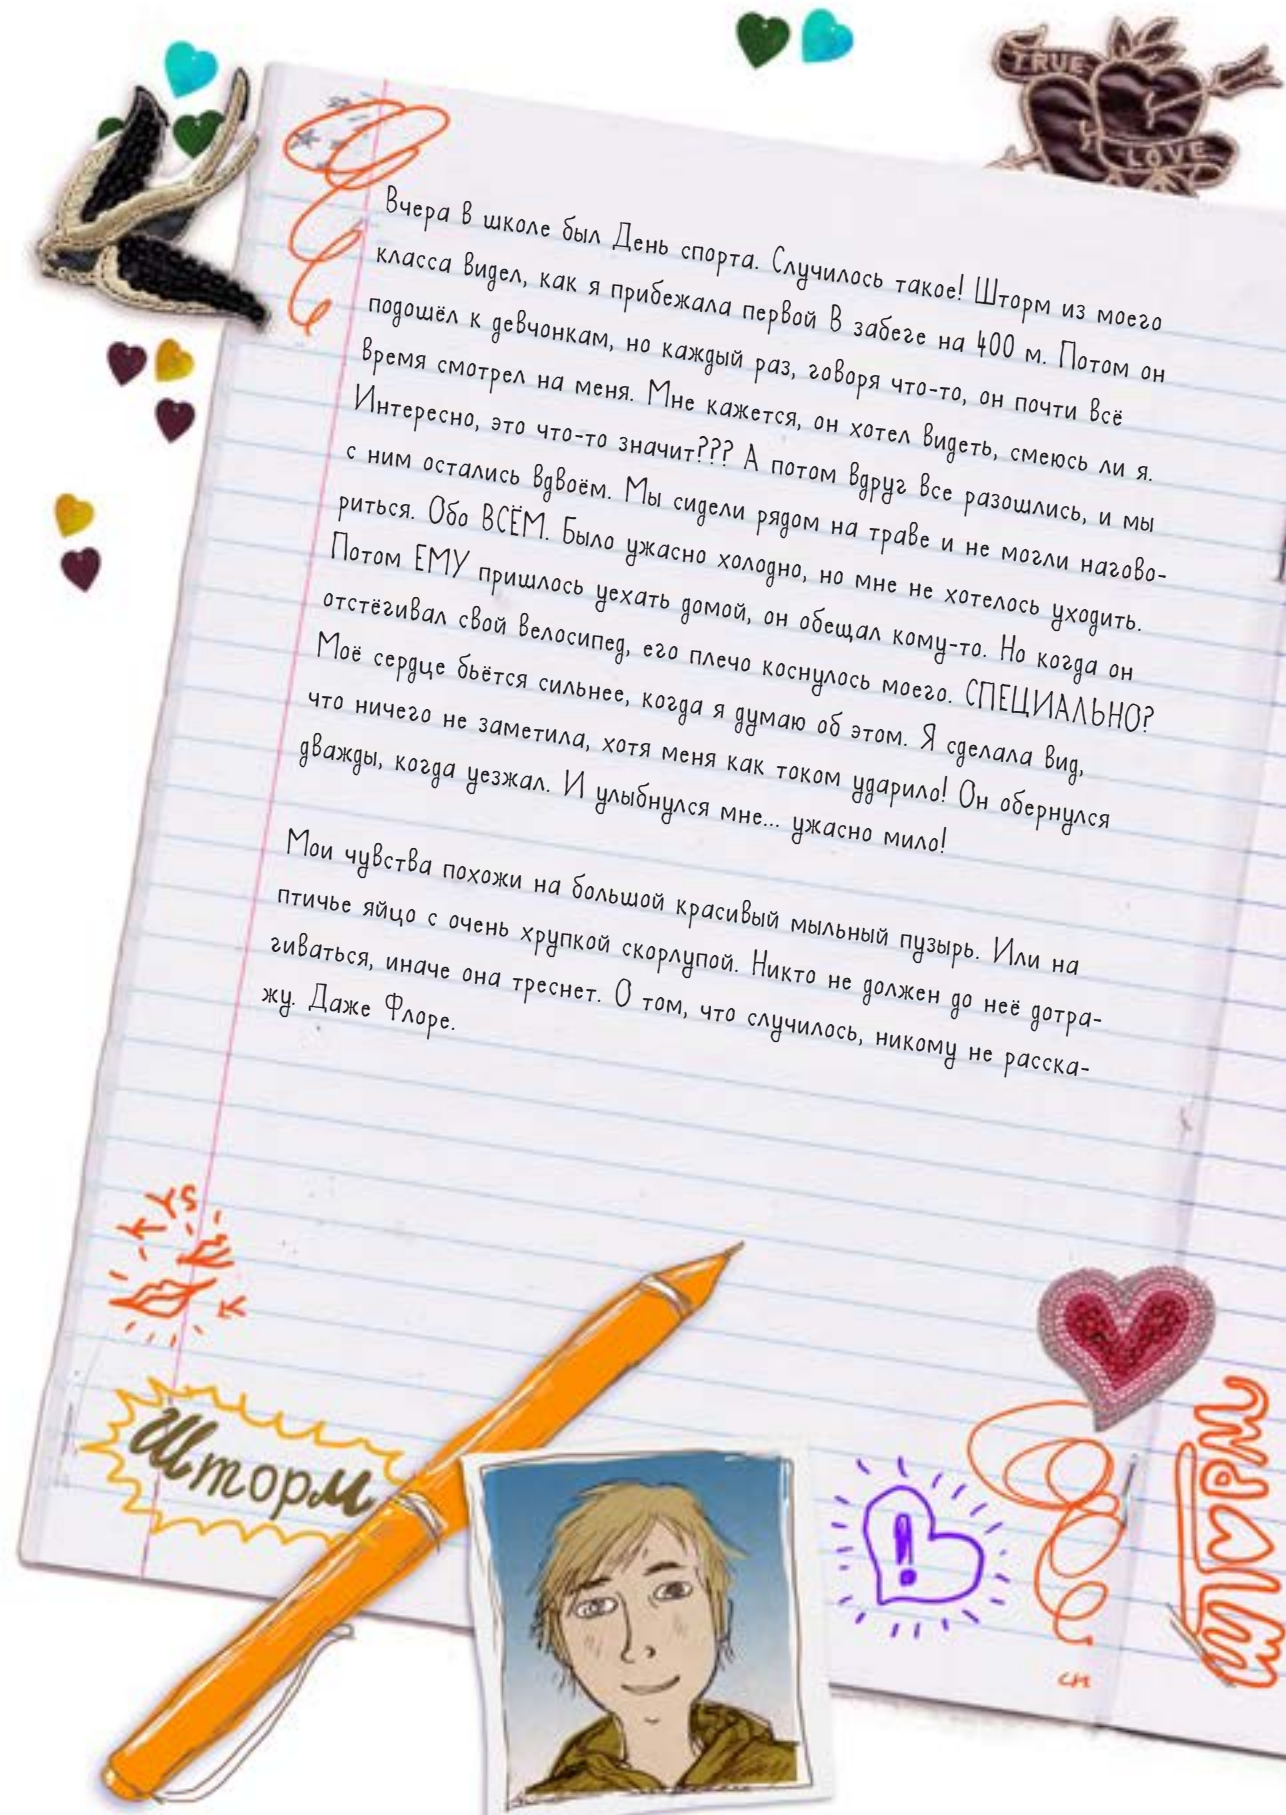 TRUE
LOVE
Вчера в школе был День спорта. Случилось такое! Шторм из моего
класса видел, как я прибежала первой В забеге на 400 м. Потом он
подошёл к девчонкам, но каждый раз, говоря что-то, он почти всё
время смотрел на меня. Мне кажется, он хотел видеть, смеюсь ли я.
Интересно, это что-то значит??? А потом вдруг все разошлись, и мы
с ним остались вдвоём. Мы сидели рядом на траве и не могли нагово-
риться. Обо ВСЁМ. Было ужасно холодно, но мне не хотелось уходить.
Потом ЕМУ пришлось уехать домой, он обещал кому-то. Но когда он
отстёгивал свой велосипед, его плечо коснулось моего. СПЕЦИАЛЬНО?
Моё сердце бьётся сильнее, когда я думаю об этом. Я сделала вид,
что ничего не заметила, хотя меня как током ударило! Он обернулся
дважды, когда уезжал. И улыбнулся мне... ужасно мило!
Мои чувства похожи на большой красивый мыльный пузырь. Или на
птичье яйцо с очень хрупкой скорлупой. Никто не должен до неё дотра-
гиваться, иначе она треснет. О том, что случилось, никому не расска-
жу. Даже Флоре.
Шторм
!
Шторм